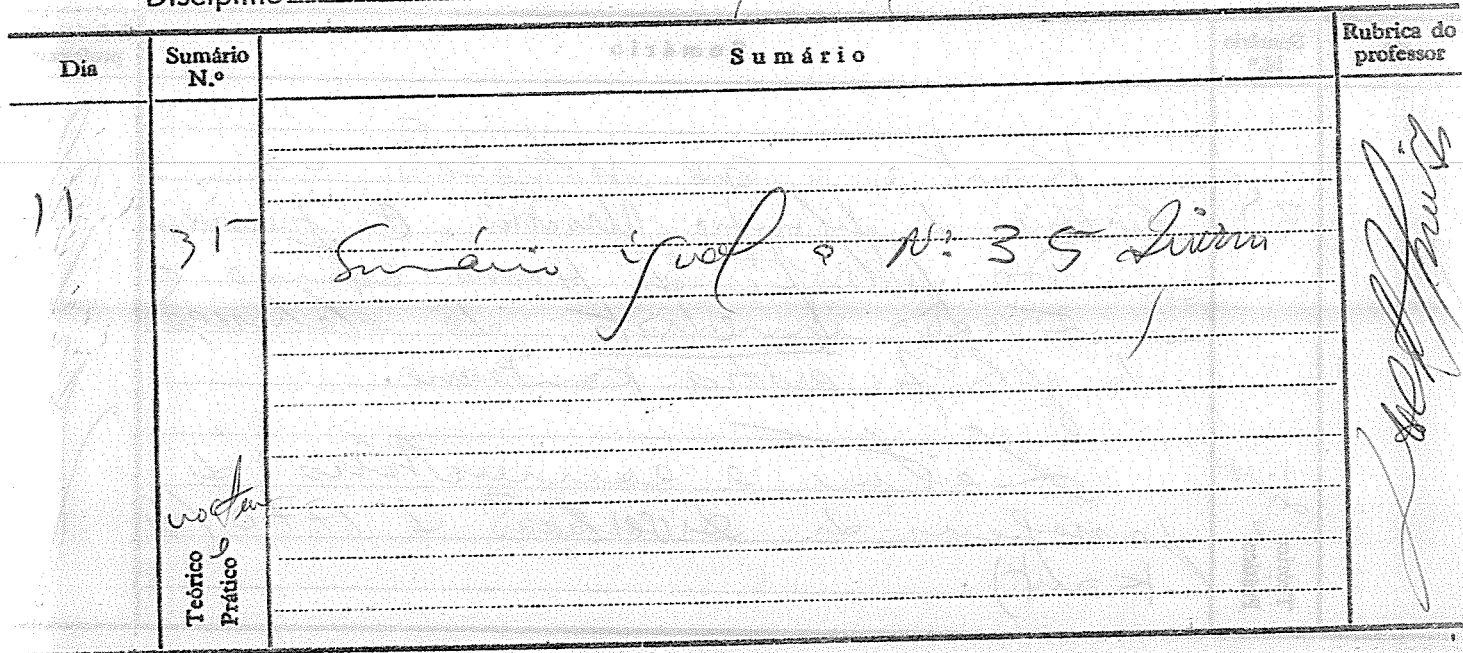 Disciplina
Dia
Sumário N.º
Sumário
Rubrica do professor
11
31 -
Sumário igual o N.º 35 diurno
Teórico
Prático